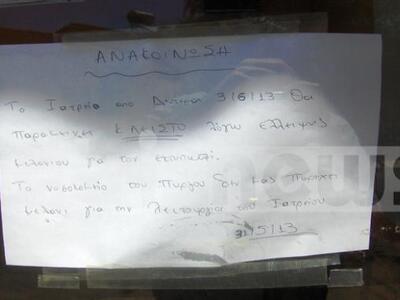 ΑΝΑΚΟΙΝΩΣΗ
Το Ιατρείο από Δευτέρα 3/6/13 θα
παραμείνει ΚΛΕΙΣΤΟ λόγω έλλειψης
μελανιού για τον εκτυπωτή.
Το νοσοκομείο του Πύργου δεν μας παρέχει
μελάνι για την λειτουργία του Ιατρείου
31/5/13
news